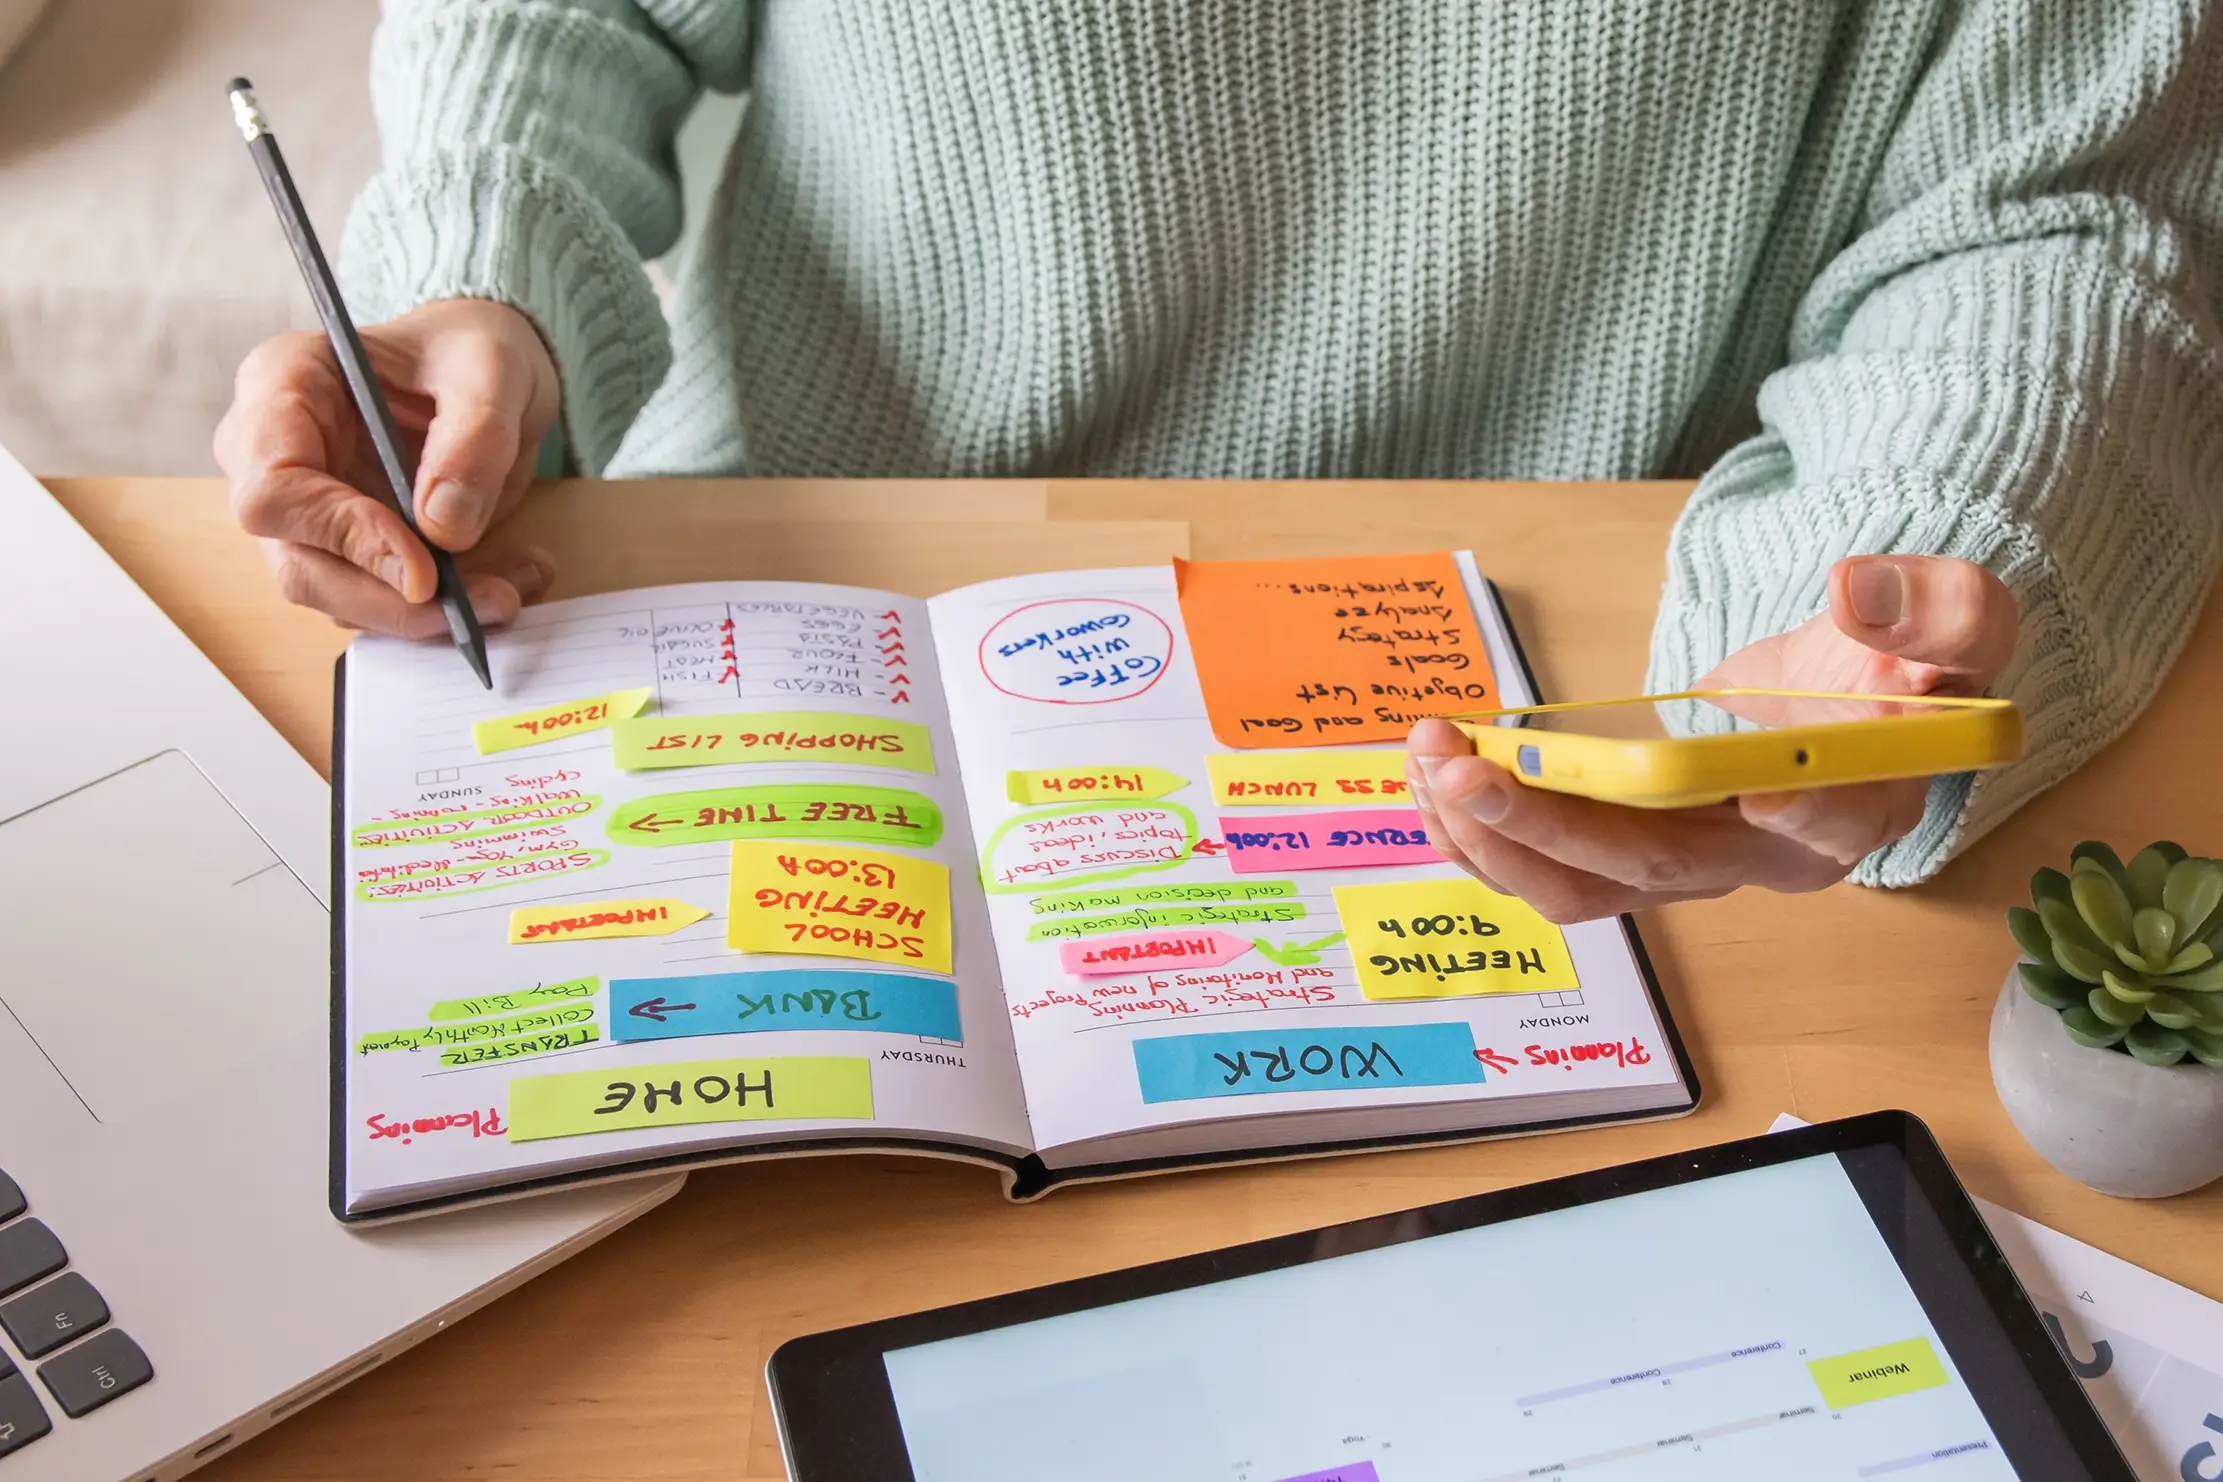 Planning
WORK
MONDAY
MEETING
9:00h
Strategic Planning
and Monitoring of new
Projects
IMPORTANT
Strategic information
and decision making
12:00h
Discuss about
topics, ideal
and works
LUNCH
14:00h
and Goal
Objetive List
Goals
Strategy
Analyze
Aspirations...
COFFee
with
COWORKERS
HOME
Planning
THURSDAY
BANK
TRANSFER
Collect Monthly Payment
Pay Bill
SCHOOL
MEETING
13:00h
IMPORTANT
FREE TIME
SPORTS ACTIVITIES:
Gym, Yoga-
Swimming
OUTDOOR ACTIVITIES
Walking - running -
Cycling
SUNDAY
SHOPPING LIST
12:00h
- BREAD
- MILK
- FLOUR
- PASTA
- EGGS
- VEGETABLES
- FISH
- MEAT
- SUGAR
- OLIVE OIL
Webinar
27
Conference
28
Conference
29
20
Seminar
21
Seminar
Seminar
Presentation
30
Yoga
31
Fn
Ctrl